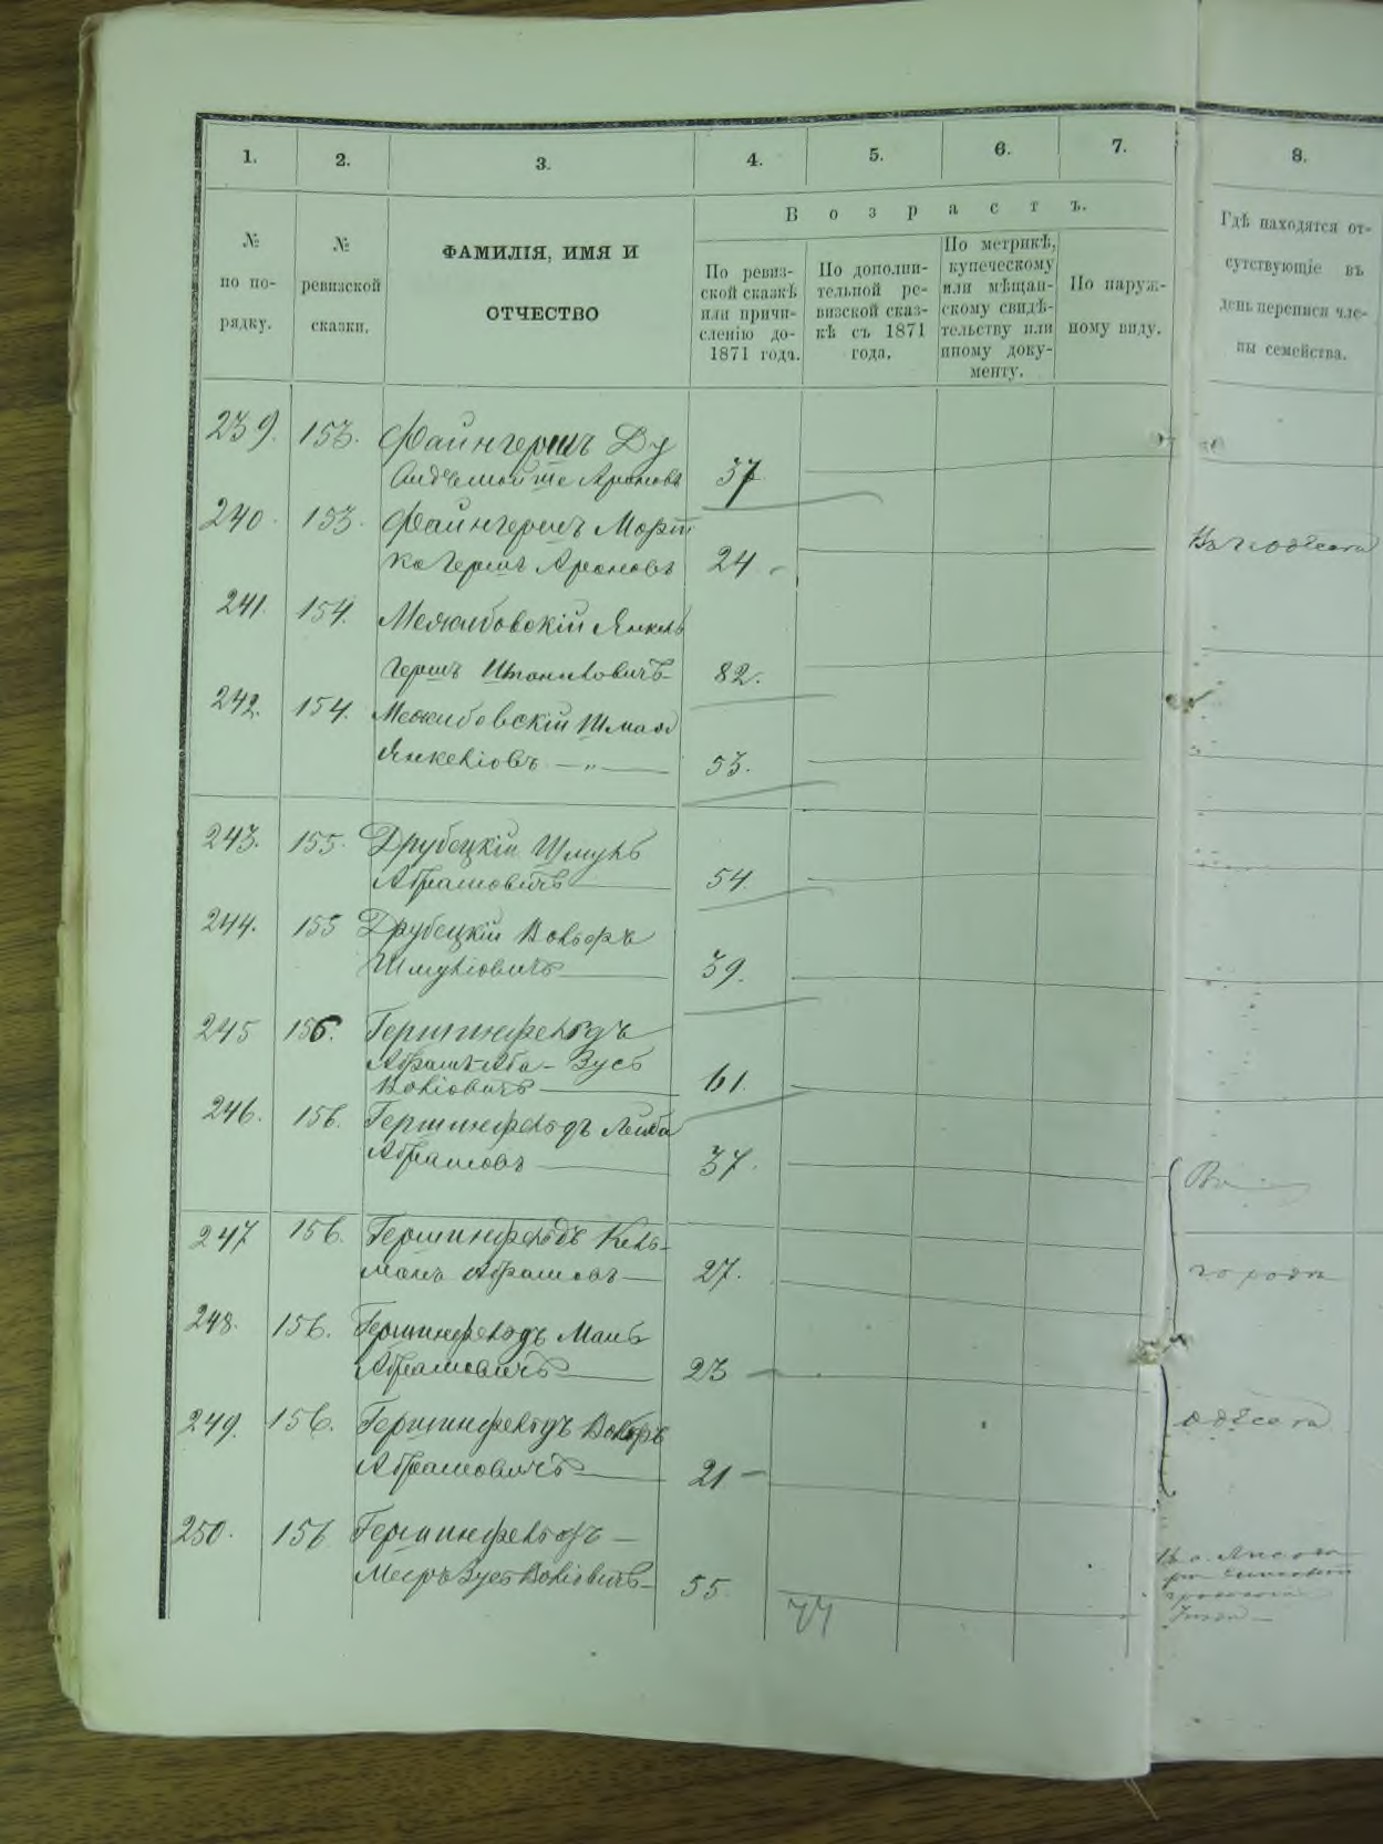 1. 2. 3. 4. 5. 6. 7. 8.
№ по по-рядку.
№ ревизской сказки.
ФАМИЛІЯ, ИМЯ И
ОТЧЕСТВО
Возрастъ.
По ревиз-
ской сказкѣ
или причи-
сленію до
1871 года.
По дополни-
тельной ре-
визской сказ-
кѣ съ 1871
года.
По метрикѣ,
купеческому
или мѣщан-
скому свидѣ-
тельству или
иному доку-
менту.
По наруж-
ному виду.
Гдѣ находятся от-
сутствующіе въ
день переписи чле-
ны семейства.
239. 153. Файнгершъ Ду
Ароновъ 37
240. 153. Файнгершъ Морт
ко Гершъ Ароновъ 24 Въ г Одесса
241. 154. Межибовскій Янкель
Гершъ 82.
242. 154. Межибовскій Шмая
Янкеліовъ — „ — 53.
243. 155. Друбецкій Шмуль
Абрамовичъ 54.
244. 155 Друбецкій Вольфъ
Шмуліовичъ 39.
245 156. Гершинфельдъ
Абрамъ Аба - Зусь
Воліовичъ 61.
246. 156. Гершинфельдъ Лейба
Абрамовъ 37. Въ
247 156. Гершинфельдъ Кель-
манъ Абрамовъ 27. городѣ
248. 156. Гершинфельдъ Мань
Абрамовичъ 23
249. 156. Гершинфельдъ Вольфъ
Абрамовичъ 21 Одесса
250. 156 Гершинфельдъ
Мееръ Зусь Воліовичъ 55